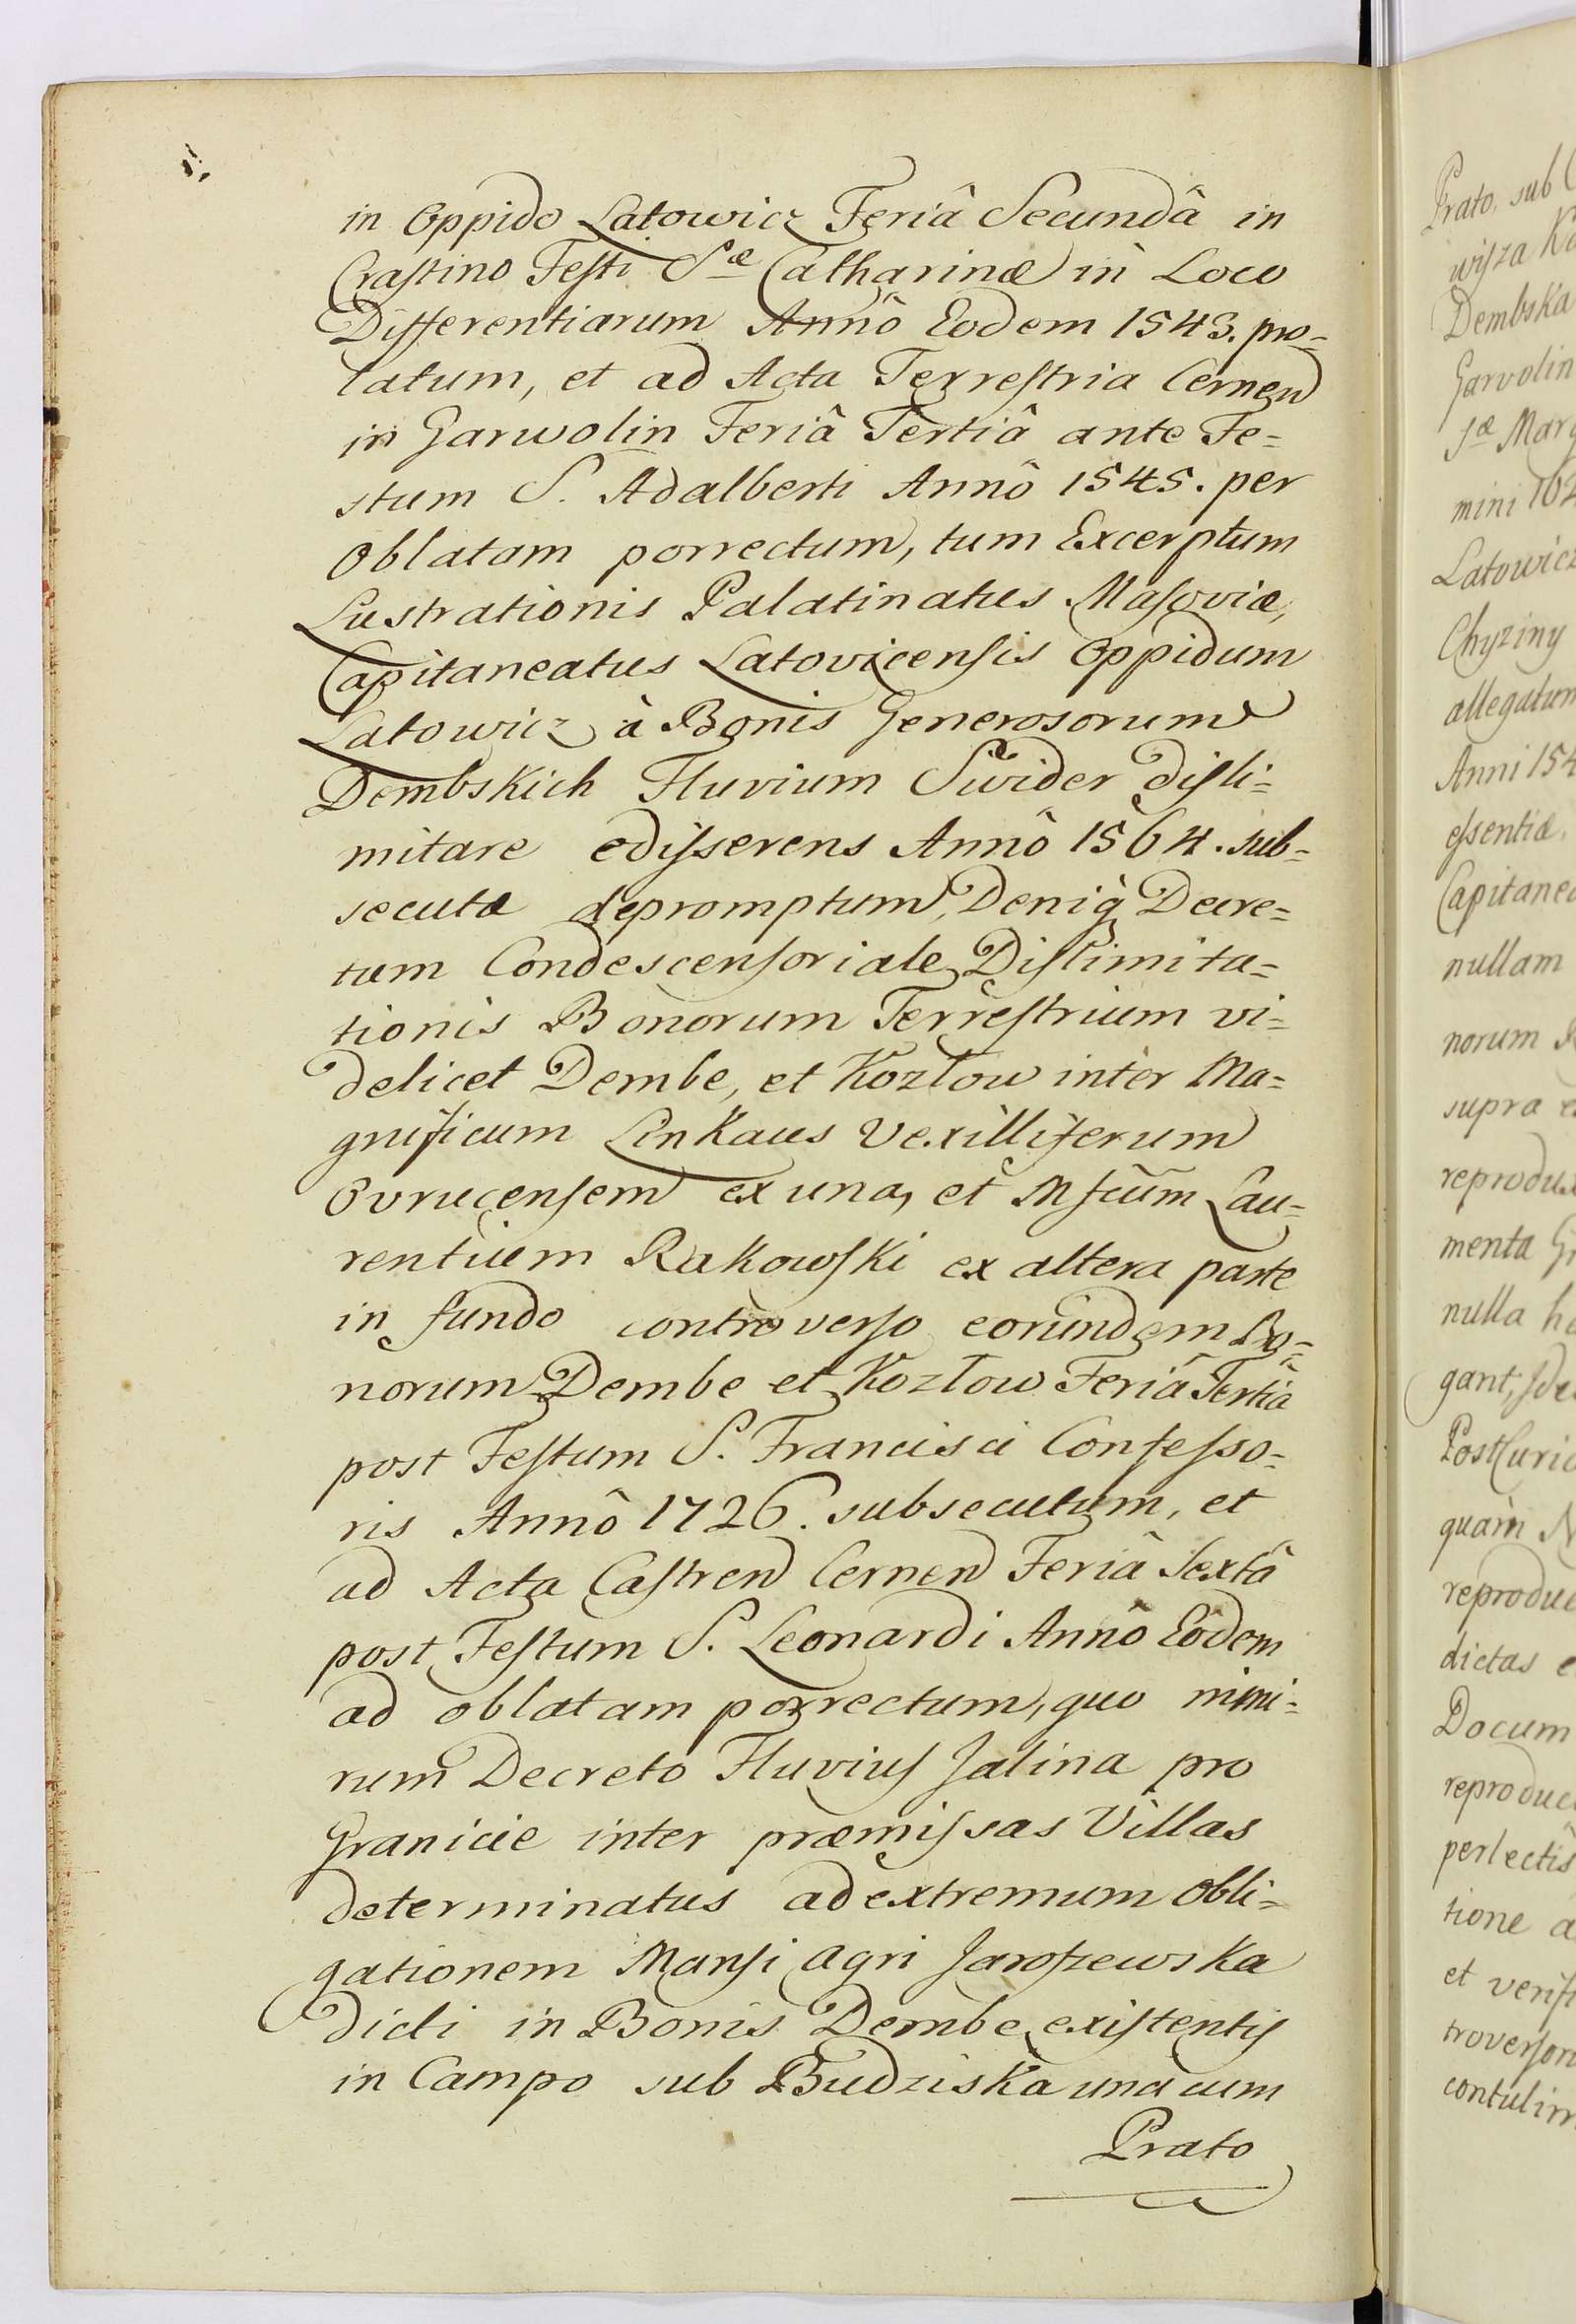 in Oppido Latowicz Feriâ Secundâ in
Crastino Festi Sæ Catharinæ in Loco
Differentiarum Annô Eodem 1543. pro=
latum, et ad Acta Terrestria Cernen
in Garwolin Feriâ Tertiâ ante Fe=
stum S. Adalberti Annô 1545. per
Oblatam porrectum, tum Excerptum
Lustrationis Palatinatus Masoviæ,
Capitaneatus Latovicensis Oppidum
Latowicz à Bonis Generosorum
Dembskich Fluvium Swider disli=
mitare edisserens Annô 1564. sub=
secutæ depromptum, Deniq̀ Decre=
tum Condescensoriale Dislimita=
tionis Bonorum Terrestrium vi=
delicet Dembe, et Kozłow inter Ma=
gnificum Linkaus Vexilliferum
Ovrucensem ex una, et Mfcum Lau=
rentium Rakowski ex altera parte
in fundo controverso eorundem Bo=
norum Dembe et Kozłow Feriâ Tertiâ
post Festum S. Francisci Confesso=
ris Annô 1726. subsecutum, et
ad Acta Castren Cernen Feriâ Sextâ
post Festum S. Leonardi Annô Eodem
ad oblatam porrectum, quo nimi=
rum Decreto Fluvius Jalina pro
Granicie inter præmissas Villas
determinatus ad extremum Obli=
gationem Mansi agri Jaroszewska
dicti in Bonis Dembe existentis
in Campo sub Budziska una cum
Prato
Prato, sub
wisza
Dembska
Garvolin
Sæ Marg
mini 162
Latowicz
Chyziny
allegatum
Anni 154
essentiæ,
Capitanea
nullam
norum
supra
reprodu
menta
nulla
gant,
Post Curia
quàm
reprodu
dictas
Docum
reproduc
perlectis
tione a
et verifi
troverson
contulim